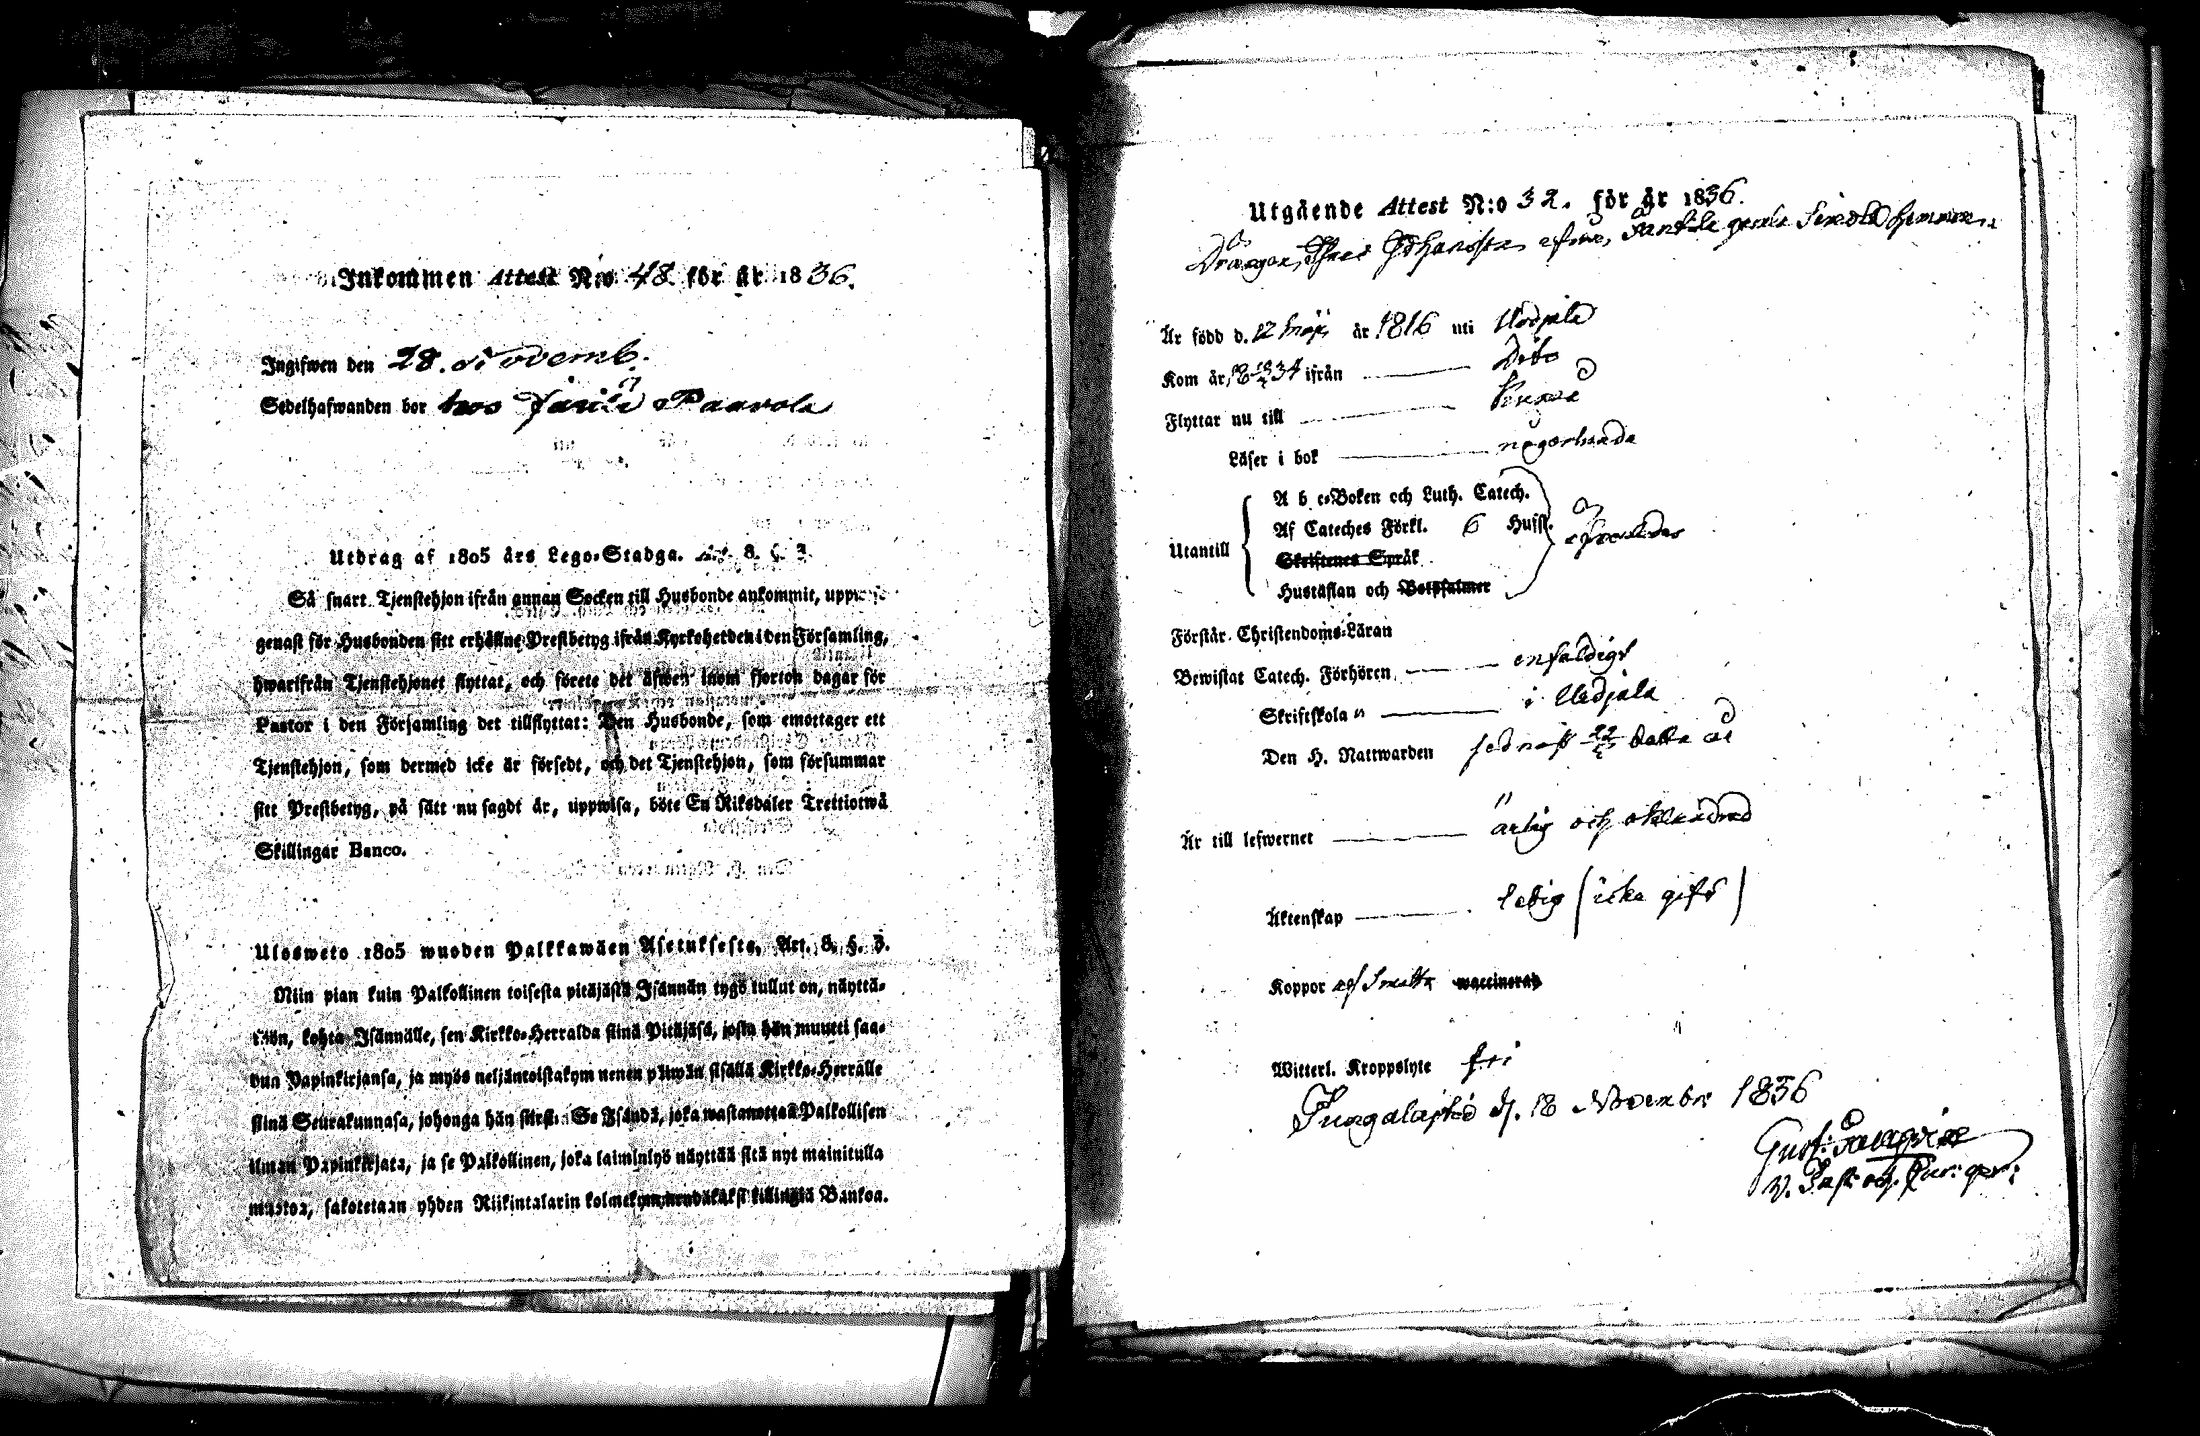 Inkommen Attest N:o 48. för år 1836.
Ingifwen den 28. Novemb.
Sedelhafwanden bor hos Paavola
Utdrag af 1805 års Lego-Stadga. Art. 8. §. 3.
Så snart Tjenstehjon ifrån annan Socken till Husbonde ankommit, uppwise
genast för Husbonden sitt erhållne Prestbetyg ifrån Kyrkoherden i den Församling,
hwarifrån Tjenstehjonet flyttat, och förete det äfwen inom fjorton dagar för
Pastor i den Församling det tillflyttat: Den Husbonde, som emottager ett
Tjenstehjon, som dermed icke är försedt, och det Tjenstehjon, som försummar
sitt Prestbetyg, på sätt nu sagdt är, uppwisa, böte En Riksdaler Trettiotwå
Skillingar Banco.
Ulosweto 1805 wuoden Palkkawäen Asetuksesta, Art. 8. §. 3.
Niin pian kuin Palkollinen toisesta pitäjästä Isännän tygö tullut on, näyttä-
kön, kohta Isännälle, sen Kirkko-Herralda siinä Pitäjäsä, josta hän muutti saa-
dun Papinkirjansa, ja myös neljäntoistakymmenen päiwän sisällä Kirkko-Herralle
siinä Seurakunnasa, johonga hän siirsi. Se Isändä, joka wastanottaa Palkollisen
ilman Papinkirjata, ja se Palkollinen, joka laiminlyö näyttää sitä nyt mainitulla
muotoa, sakotetaan yhden Riikintalarin kolmekymmendäkaksi killingiä Bankoa.
Utgående Attest N:o 32. för år 1836.
Drängen, Johansson
Är född d. 12 Maji år 1816 uti Uodjala
Kom år 1834 ifrån Dito
Flyttar nu till
Läser i bok någorlunda
A b c-Boken och Luth. Catech.
Af Cateches Förkl. 6 Hufst.
Utantill
Skriftenes Språk
Hustaflan och Botpsalmer
Förstår Christendoms-Läran
Bewistat Catech. Förhören enfaldigt
Skriftskola i Uodjala
Den H. Nattwarden sednast detta år
Är till lefwernet ärlig och oklandrad
Äktenskap ledig (icke gift)
Koppor af Smitta waccinerad
Witterl. Kroppslyte fri
d. 18 November 1836
Gust:
V. Past: och